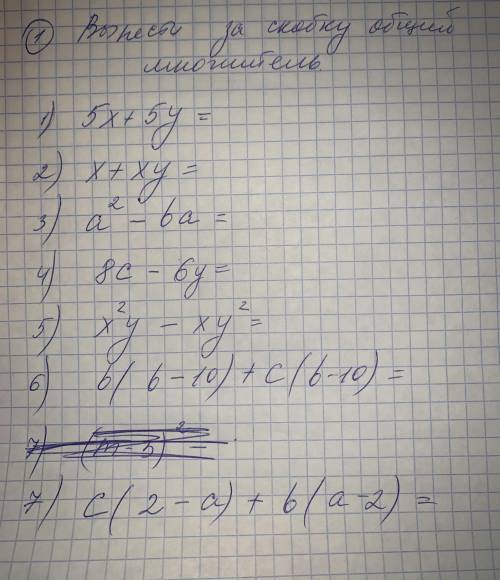 ① Вынести за скобку общий
множитель.
1) 5x + 5y =
2) x + xy =
3) a² - 6a =
4) 8c - 6y =
5) x²y - xy² =
6) b(b-10) + c(b-10) =
7) (m-5)² =
7) c(2-a) + b(a-2) =